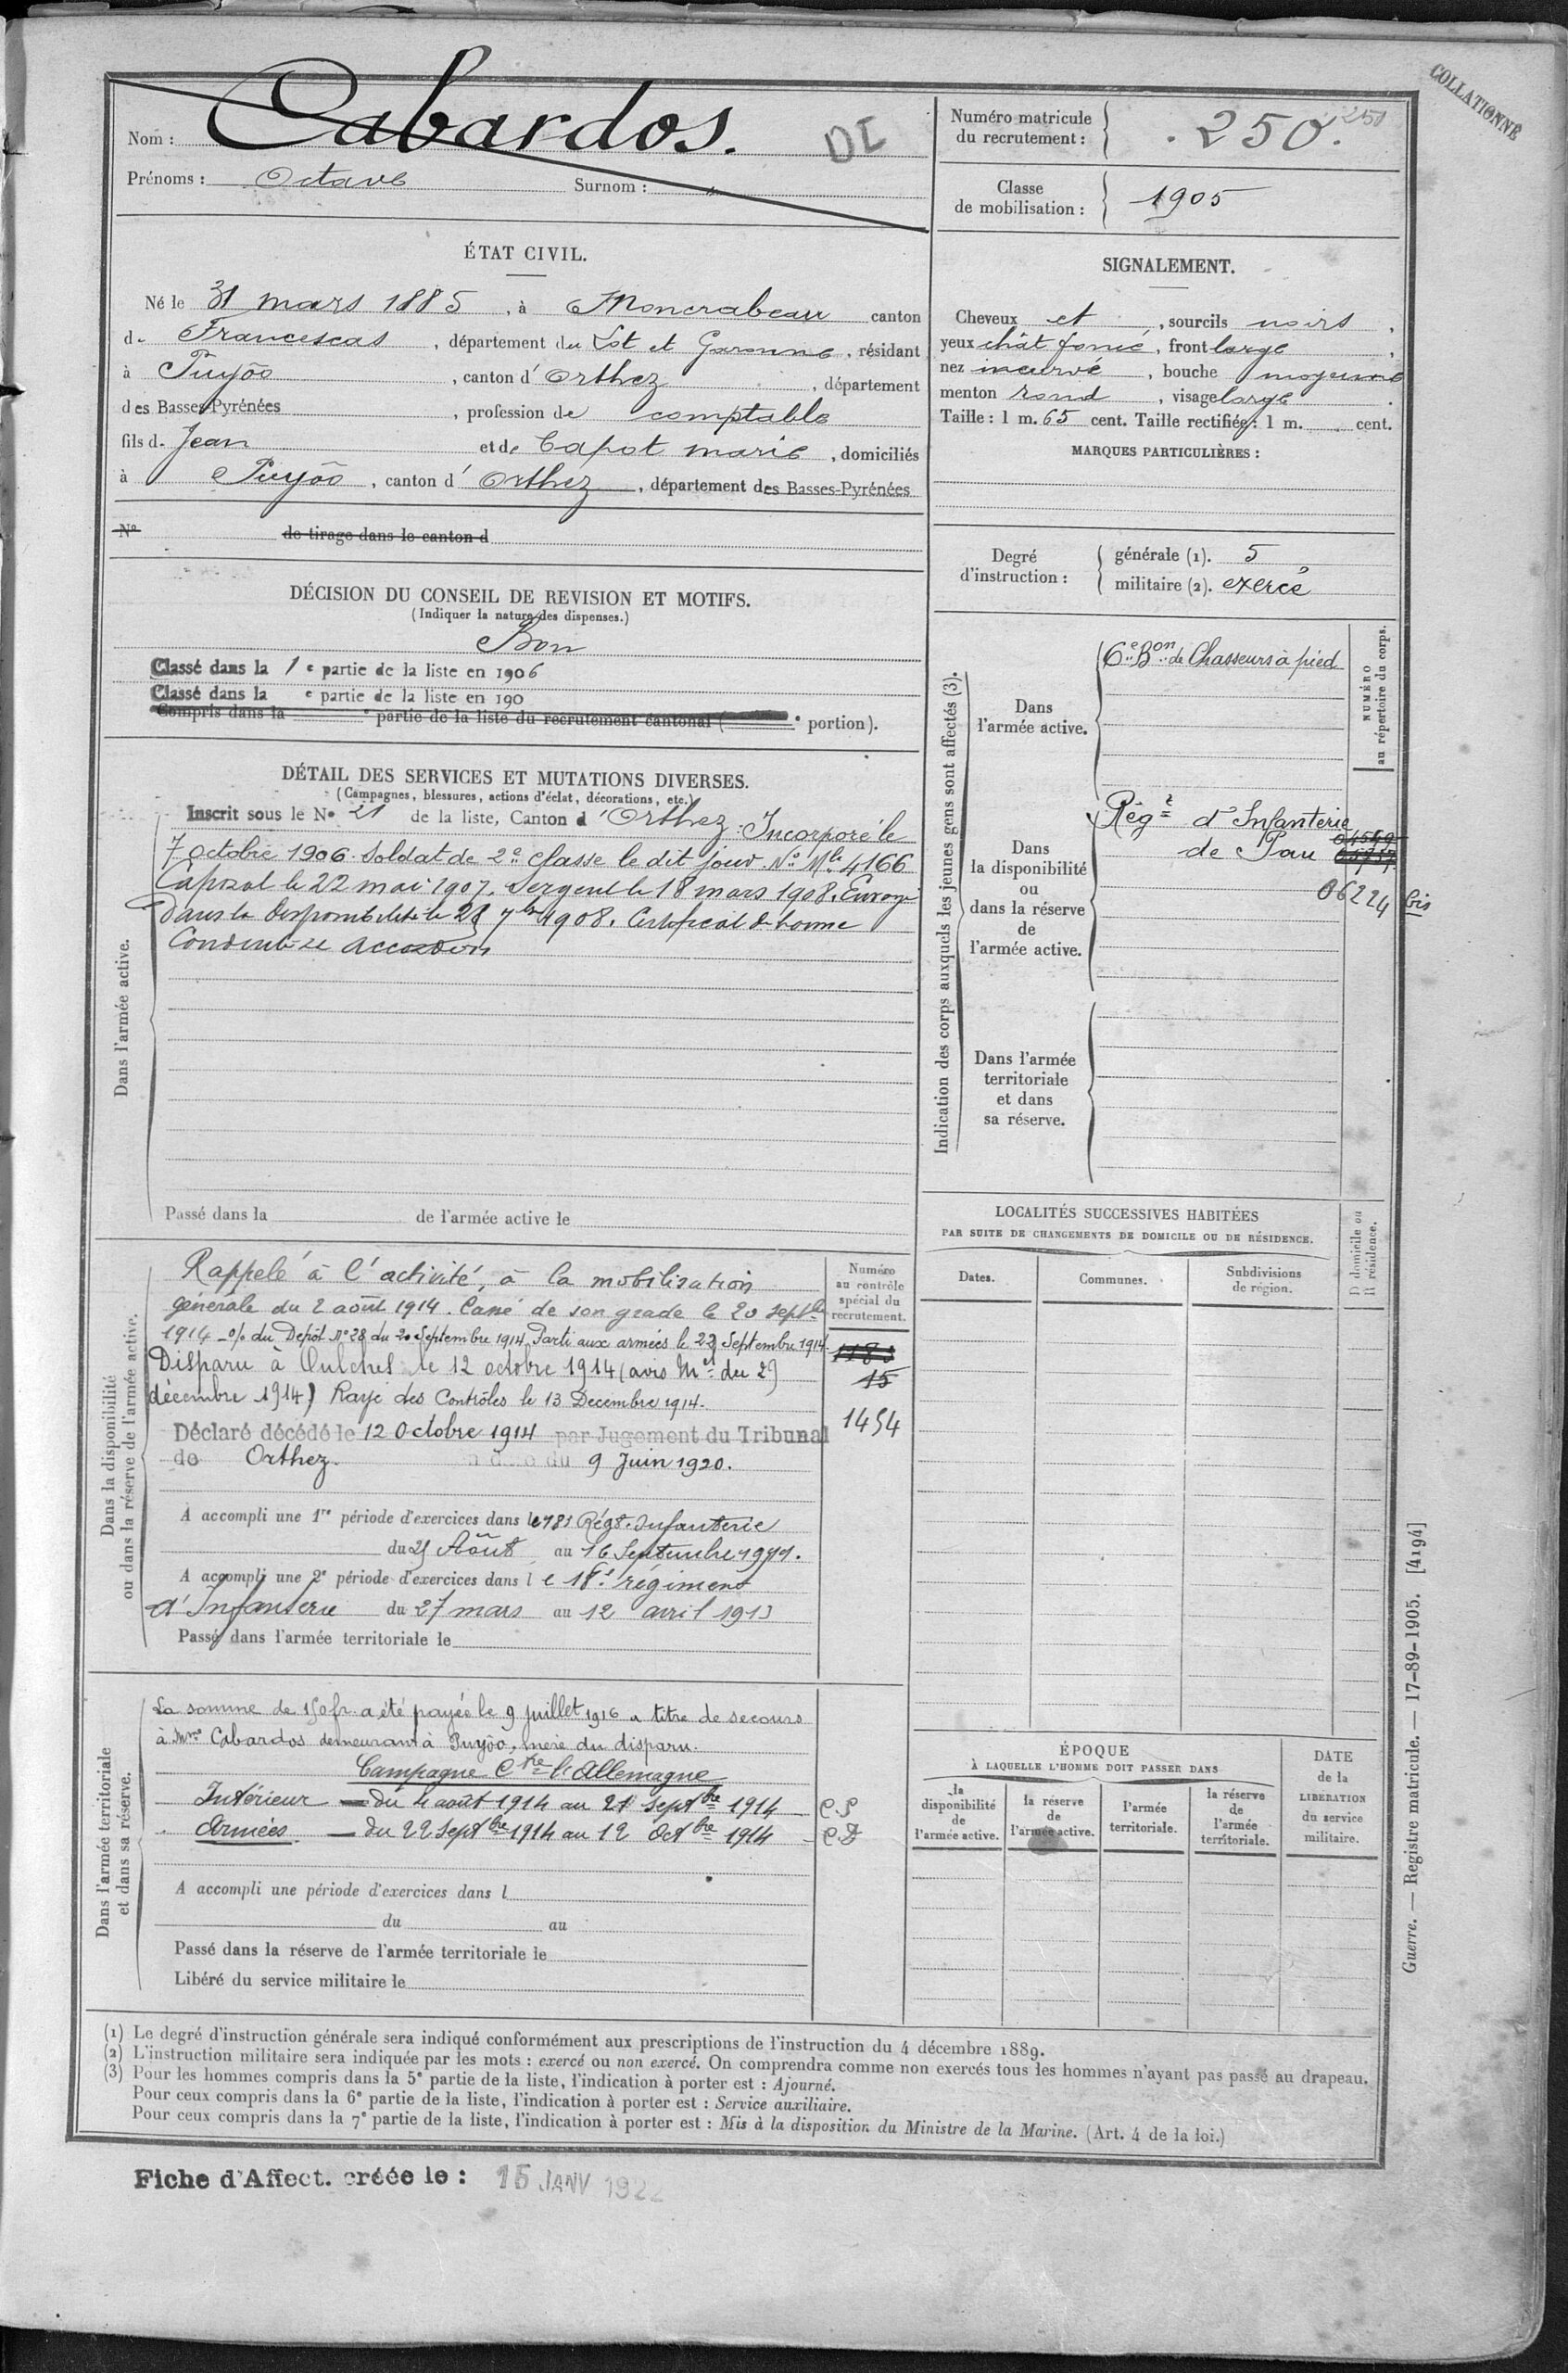 COLLATIONNÉ
Nom : Cabardos.
DI
Prénoms : Octave Surnom : "
Numéro matricule du recrutement : 250. 250
Classe de mobilisation : 1905
ÉTAT CIVIL.
Né le 31 mars 1885, à Moncrabeau canton
de Francescas, département du Lot et Garonne, résidant
à Puyôo, canton d'Orthez, département
des Basses-Pyrénées, profession de comptable
fils de Jean et de Capot marie, domiciliés
à Puyôo, canton d'Orthez, département des Basses-Pyrénées
N° de tirage dans le canton d
SIGNALEMENT.
Cheveux et, sourcils noirs,
yeux chât foncé, front large,
nez incurvé, bouche moyenne
menton rond, visage large.
Taille : 1 m. 65 cent. Taille rectifiée : 1 m. cent.
MARQUES PARTICULIÈRES :
Degré d'instruction :
générale (1). 5
militaire (2). exercé
DÉCISION DU CONSEIL DE REVISION ET MOTIFS.
(Indiquer la nature des dispenses.)
Bon
Classé dans la 1e partie de la liste en 1906
Classé dans la e partie de la liste en 190
Compris dans la e partie de la liste du recrutement cantonal ( e portion).
DÉTAIL DES SERVICES ET MUTATIONS DIVERSES.
(Campagnes, blessures, actions d'éclat, décorations, etc.)
Dans l'armée active.
Inscrit sous le N° 21 de la liste, Canton d'Orthez. Incorporé le
7 octobre 1906. Soldat de 2e classe le dit jour. N° Mle 4166
Caporal le 22 mai 1907. Sergent le 18 mars 1908. Envoyé
dans la disponibilité le 28 7bre 1908. Certificat de bonne
Conduite accordé
Passé dans la de l'armée active le
Indication des corps auxquels les jeunes gens sont affectés (3).
NUMÉRO au répertoire du corps.
Dans l'armée active.
6e Bon de Chasseurs à pied
Dans la disponibilité ou dans la réserve de l'armée active.
Régt d'Infanterie
de Pau
06224 bis
Dans l'armée territoriale et dans sa réserve.
Dans la disponibilité ou dans la réserve de l'armée active.
Numéro au contrôle spécial du recrutement.
Rappelé à l'activité, à la mobilisation
générale du 2 août 1914. Cassé de son grade le 20 Septbre
1914 - o/o du Dépôt N° 28 du 20 Septembre 1914. Parti aux armées le 22 Septembre 1914.
Disparu à Oulches le 12 octobre 1914 (avis Mel du 29
décembre 1914) Rayé des Contrôles le 13 Decembre 1914.
15
1454
Déclaré décédé le 12 Octobre 1914 par Jugement du Tribunal
de Orthez. en date du 9 Juin 1920.
A accompli une 1re période d'exercices dans le 18e Régt. Infanterie
du 25 Août au 16 Septembre 1911.
A accompli une 2e période d'exercices dans le 18e régiment
d'Infanterie du 27 mars au 12 avril 1913
Passé dans l'armée territoriale le
LOCALITÉS SUCCESSIVES HABITÉES
PAR SUITE DE CHANGEMENTS DE DOMICILE OU DE RÉSIDENCE.
Dates. Communes. Subdivisions de région. D domicile ou R résidence.
Dans l'armée territoriale et dans sa réserve.
La somme de 150fr. a été payée le 9 juillet 1916 a titre de secours
à Mme Cabardos demeurant à Puyôo, mère du disparu.
Campagne Ctre l'Allemagne
Intérieur — du 4 août 1914 au 21 Septbre 1914 C.S
Armées. — du 22 Septbre 1914 au 12 Octbre 1914 C.D
A accompli une période d'exercices dans l
du au
Passé dans la réserve de l'armée territoriale le
Libéré du service militaire le
ÉPOQUE
À LAQUELLE L'HOMME DOIT PASSER DANS
la disponibilité de l'armée active.
la réserve de l'armée active.
l'armée territoriale.
la réserve de l'armée territoriale.
DATE de la LIBÉRATION du service militaire.
Guerre. — Registre matricule. — 17-89-1905. [4194]
(1) Le degré d'instruction générale sera indiqué conformément aux prescriptions de l'instruction du 4 décembre 1889.
(2) L'instruction militaire sera indiquée par les mots : exercé ou non exercé. On comprendra comme non exercés tous les hommes n'ayant pas passé au drapeau.
(3) Pour les hommes compris dans la 5e partie de la liste, l'indication à porter est : Ajourné.
Pour ceux compris dans la 6e partie de la liste, l'indication à porter est : Service auxiliaire.
Pour ceux compris dans la 7e partie de la liste, l'indication à porter est : Mis à la disposition du Ministre de la Marine. (Art. 4 de la loi.)
Fiche d'Affect. créée le : 15 JANV 1922